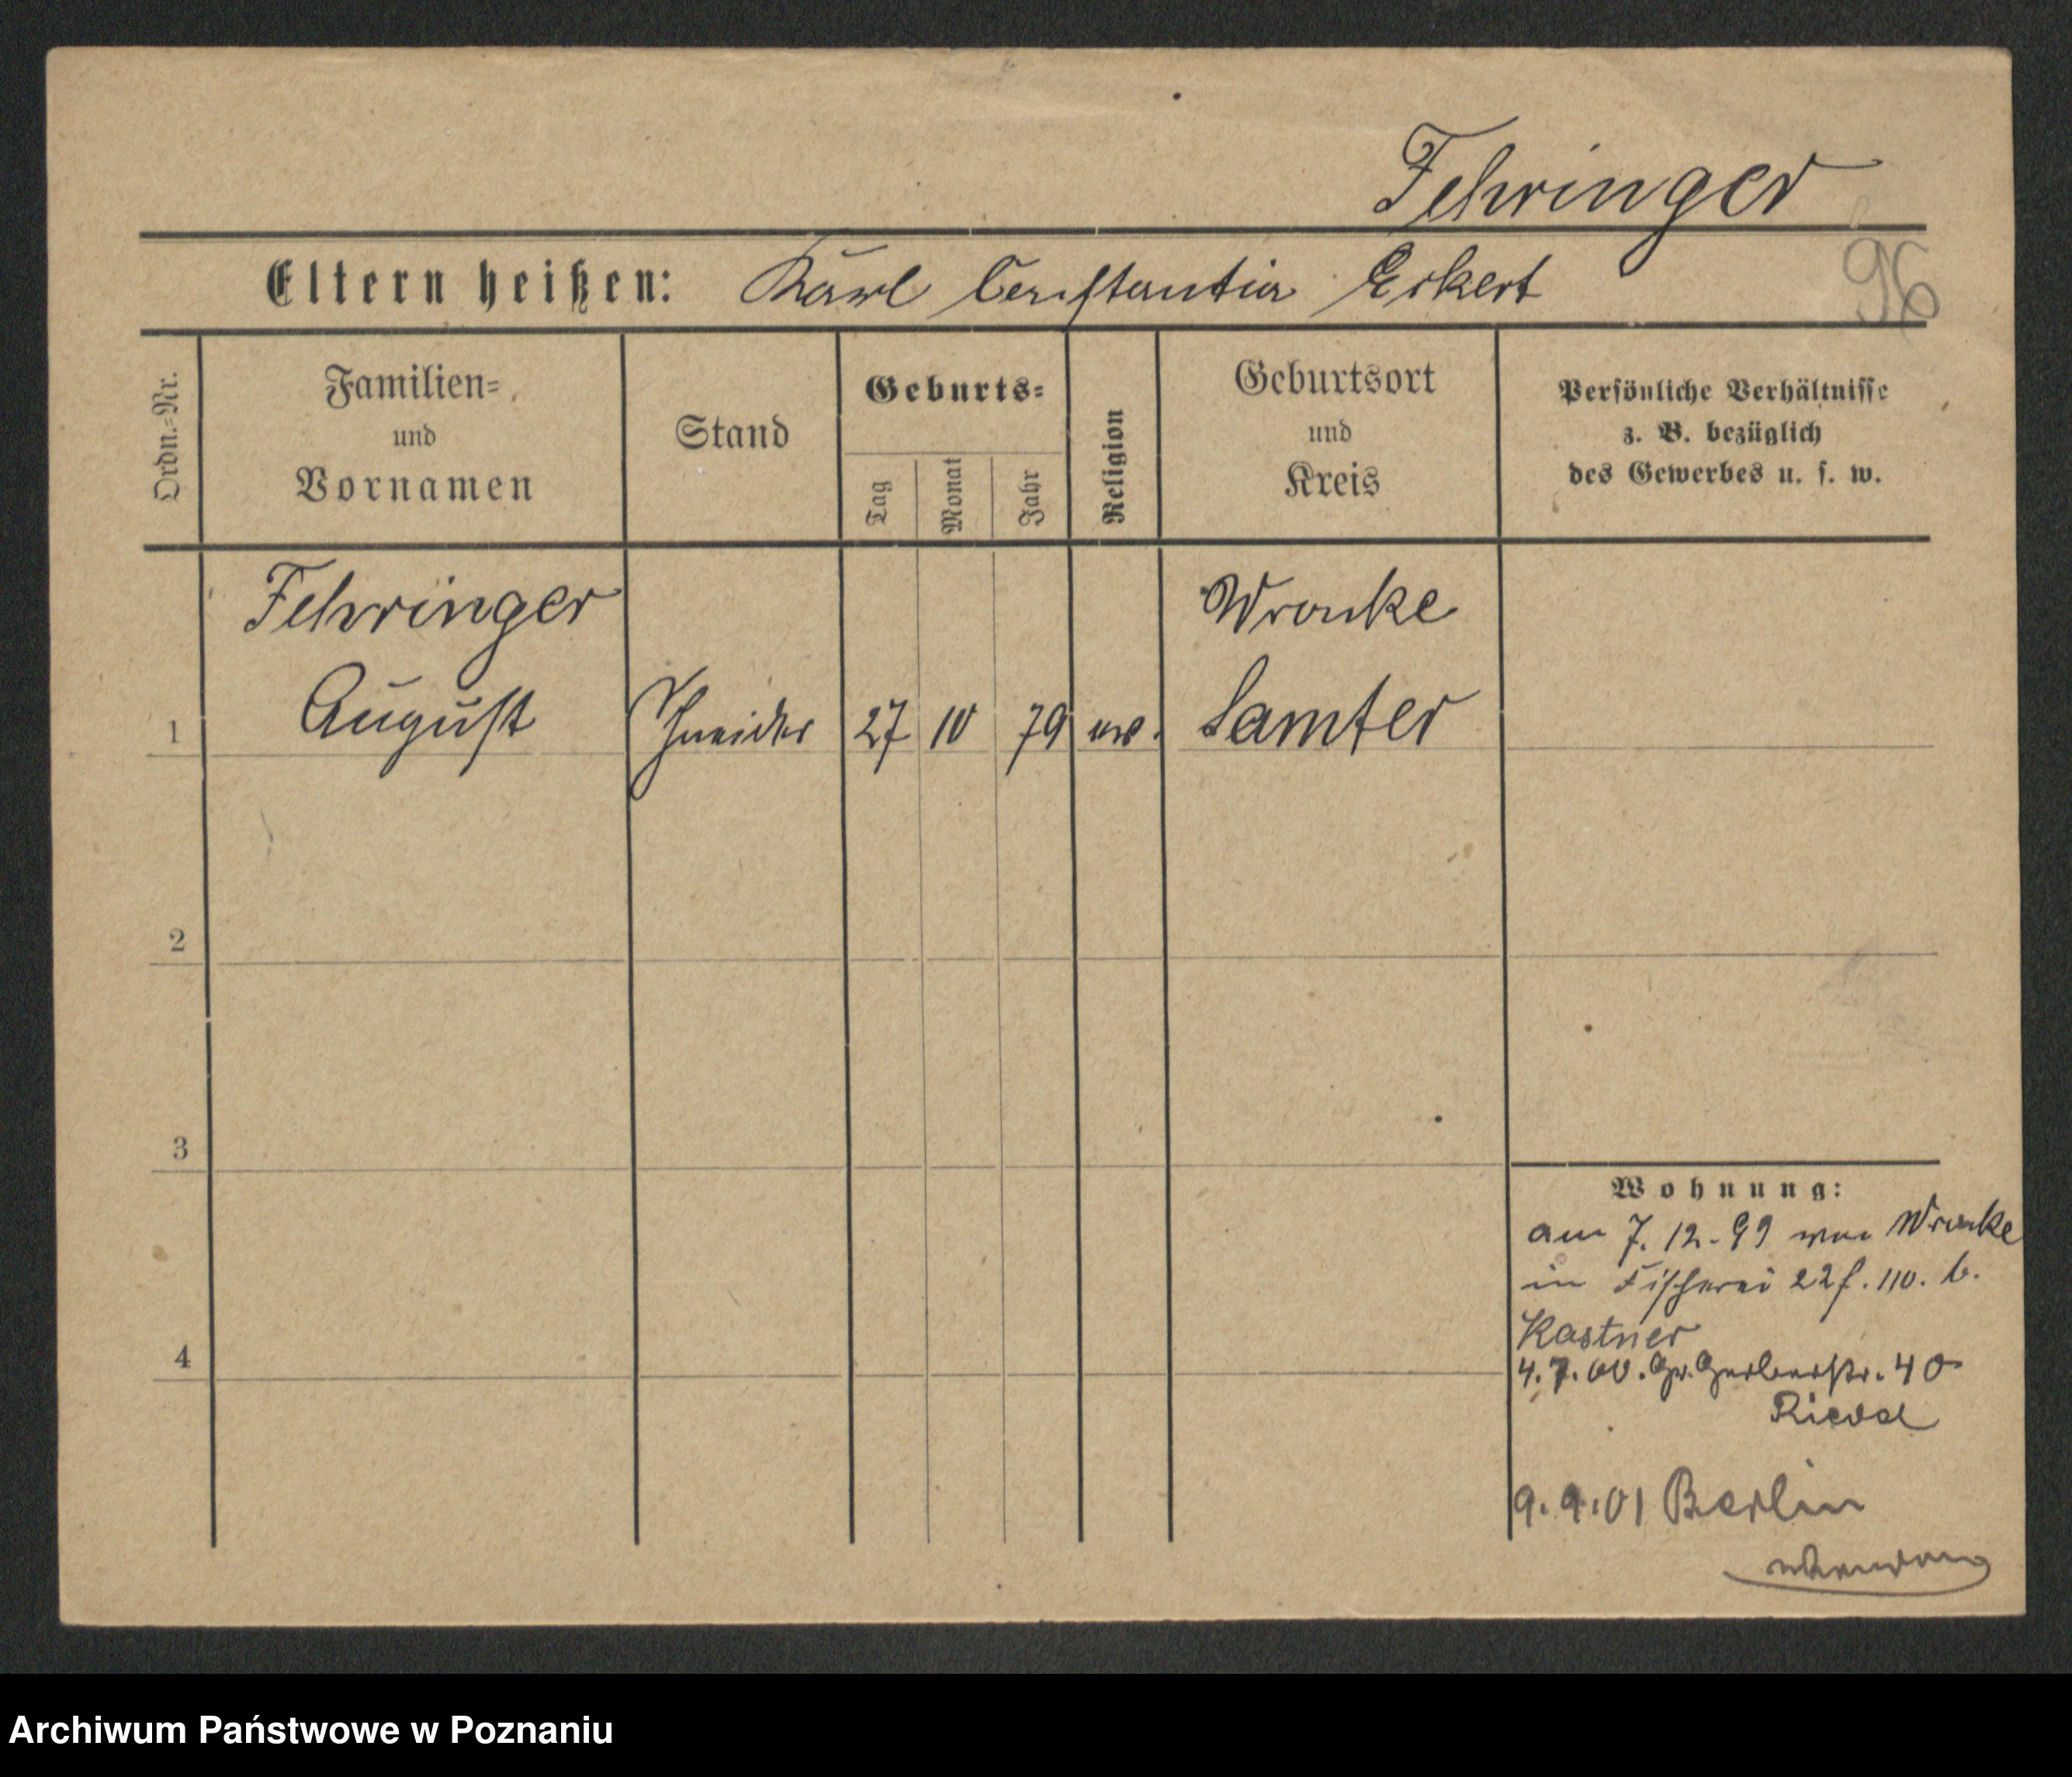 Fehringer
96
Eltern heißen: Karl Constantia Eckert
Ordn.=Nr.
Familien= und Vornamen
Stand
Geburts=
Tag
Monat
Jahr
Religion
Geburtsort und Kreis
Persönliche Verhältnisse
z. B. bezüglich
des Gewerbes u. s. w.
Fehringer
Wronke
1 August Schneider 27 10 79 ev. Samter
2
3
4
Wohnung:
am 7. 12. 99 von Wronke
in Fischerei 22 b.
Kastner
4. 7. 00. Gr. Gerberstr. 40
9. 9. 01 Berlin
Archiwum Państwowe w Poznaniu